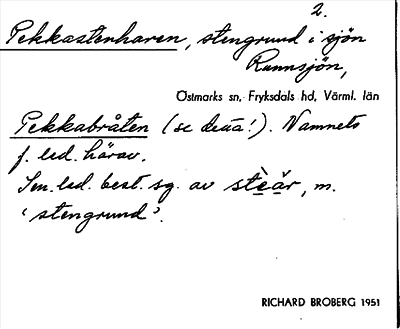 2.
Pekkastenharen, stengrund i sjön
Runnsjön,
Östmarks sn, Fryksdals hd, Värml. län
Pekkabråten (se detta!). Namnets
f. led. härav.
Sen. led. best. sg. av
m.
‘stengrund’.
RICHARD BROBERG 1951